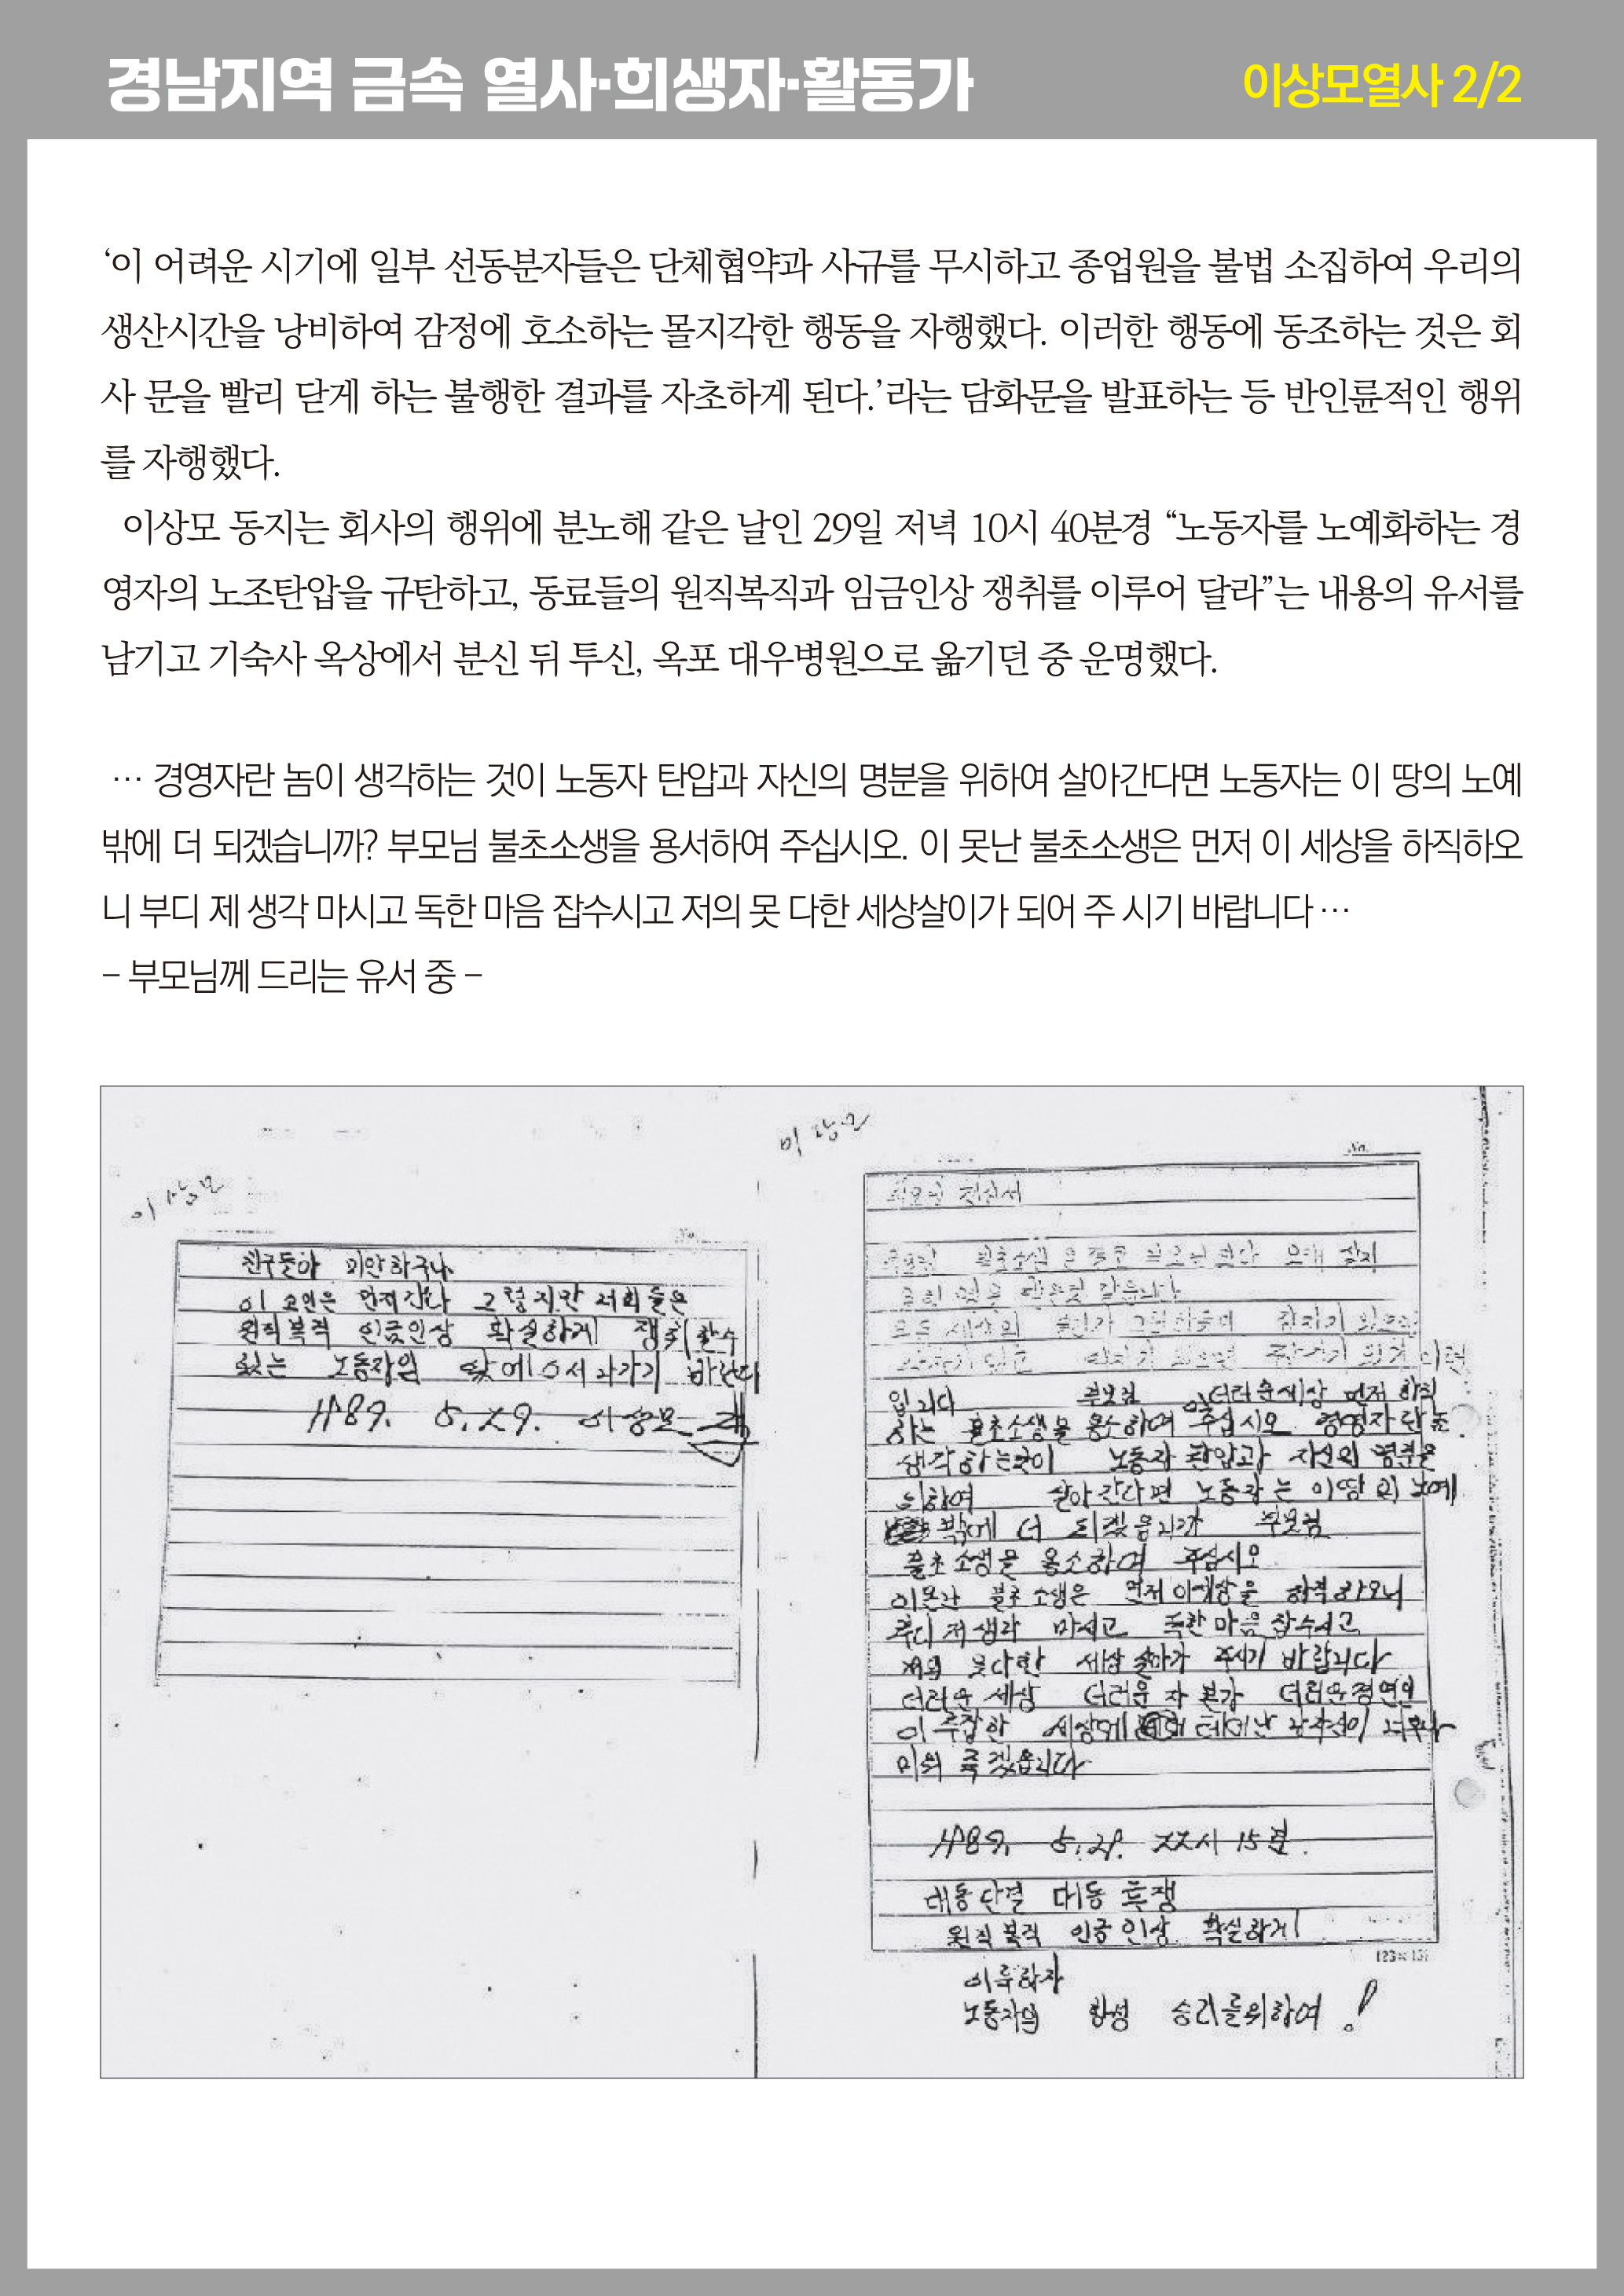 경남지역 금속 열사·희생자·활동가
이상모열사 2/2
‘이 어려운 시기에 일부 선동분자들은 단체협약과 사규를 무시하고 종업원을 불법 소집하여 우리의
생산시간을 낭비하여 감정에 호소하는 몰지각한 행동을 자행했다. 이러한 행동에 동조하는 것은 회
사 문을 빨리 닫게 하는 불행한 결과를 자초하게 된다.’라는 담화문을 발표하는 등 반인륜적인 행위
를 자행했다.
이상모 동지는 회사의 행위에 분노해 같은 날인 29일 저녁 10시 40분경 “노동자를 노예화하는 경
영자의 노조탄압을 규탄하고, 동료들의 원직복직과 임금인상 쟁취를 이루어 달라”는 내용의 유서를
남기고 기숙사 옥상에서 분신 뒤 투신, 옥포 대우병원으로 옮기던 중 운명했다.
… 경영자란 놈이 생각하는 것이 노동자 탄압과 자신의 명분을 위하여 살아간다면 노동자는 이 땅의 노예
밖에 더 되겠습니까? 부모님 불초소생을 용서하여 주십시오. 이 못난 불초소생은 먼저 이 세상을 하직하오
니 부디 제 생각 마시고 독한 마음 잡수시고 저의 못 다한 세상살이가 되어 주 시기 바랍니다 …
– 부모님께 드리는 유서 중 –
이상모
친구들아 미안하구나
이 고인은 먼저간다 그렇지만 너희들은
원직복직 인금인상 확실하게 쟁취할수
있는 노동자의 바란다
1989. 5. 29. 이상모
이상모
No.
입니다 부모님 더러운세상 먼저 하직
하는 불초소생을 용소하여 주십시오 경영자란
생각하는것이 노동자 탄압과 자신의 명분을
위하여 살아간다면 노동자는 이땅의 노예
밖에 더 되겠읍니까 부모님
불초소생을 용소하여 주십시오
이못난 불초소생은 먼저 이세상을 하직하오니
부디 저생각 마시고 독한마음 잡수시고
저의 못다한 세상 살아가 주시기 바랍니다
더러운 세상 더러운 자본가 더러운경영인
이 세상에
죽겠읍니다
1989. 5. 29. 22시 15분.
대동단결 대동투쟁
원직복직 인금인상 확실하게
이룩하자
노동자의 함성 승리를위하여!